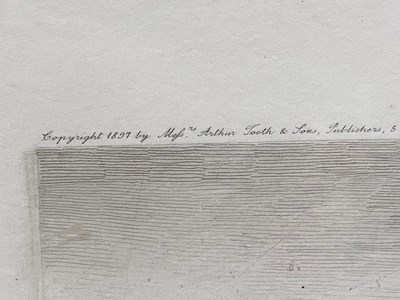 Copyright 1897 by Meſs.rs Arthur Tooth & Sons, Publishers, 5